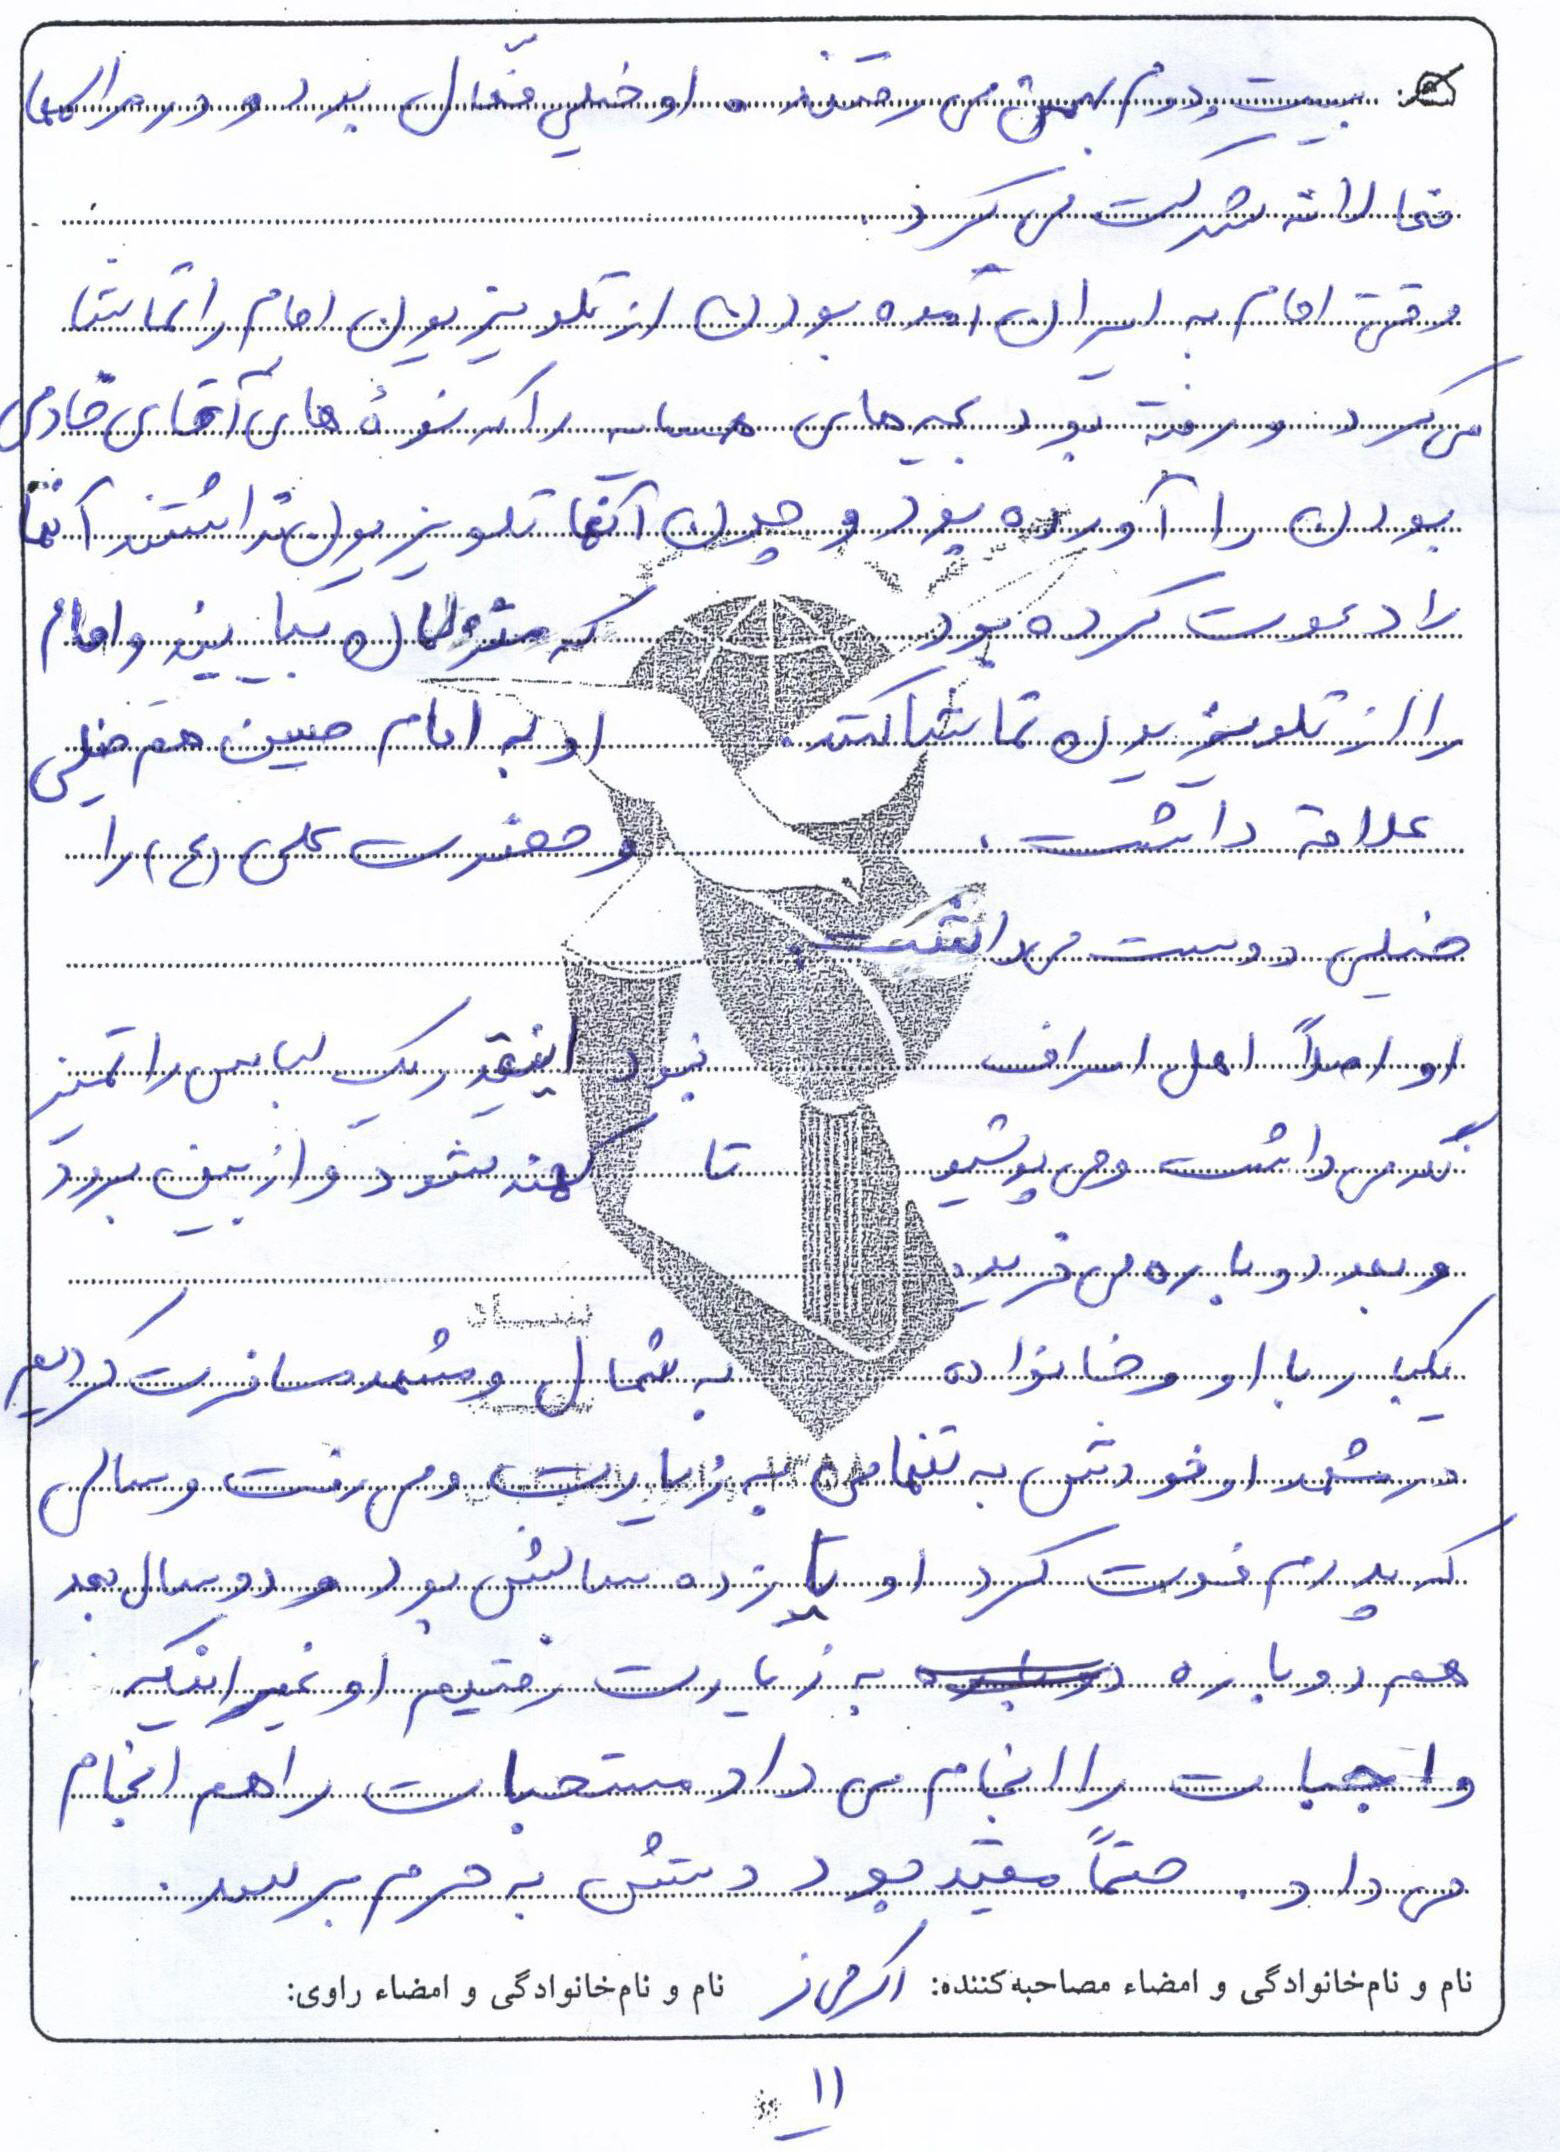 بیست و دوم بهمن می رفتند. او خیلی فعّال بود و در مراسمها
فعالانه شرکت می کرد.
وقتی امام به ایران آمده بودن از تلویزیون امام را تماشا
می کرد و رفته بود بچه های همسایه را که نوهٔ های آقای خادمی
بودن را آورده بود و چون آنها تلویزیون نداشتند آنها
را دعوت کرده بود که منزلمان بیایند و امام
را از تلویزیون تماشا کنند. او به امام حسین هم خیلی
علاقه داشت. و حضرت علی (ع) را
خیلی دوست می داشت.
او اصلاً اهل اسراف نبود اینقدر یک لباس را تمیز
نگه می داشت و می پوشید تا کهنه شود و از بین برود
و بعد دوباره می خرید.
یکبار با او و خانواده به شمال و مشهد مسافرت کردیم
در مشهد او خودش به تنهایی به زیارت می رفت و سالی
که پدرم فوت کرد او پانزده سالش بود و دو سال بعد
هم دوباره به زیارت رفتیم او غیر اینکه
واجبات را انجام می داد مستحبات را هم انجام
می داد. حتماً مقیّد بود دستش به حرم برسد.
نام و نام‌خانوادگی و امضاء مصاحبه‌کننده: نام و نام‌خانوادگی و امضاء راوی:
۱۱